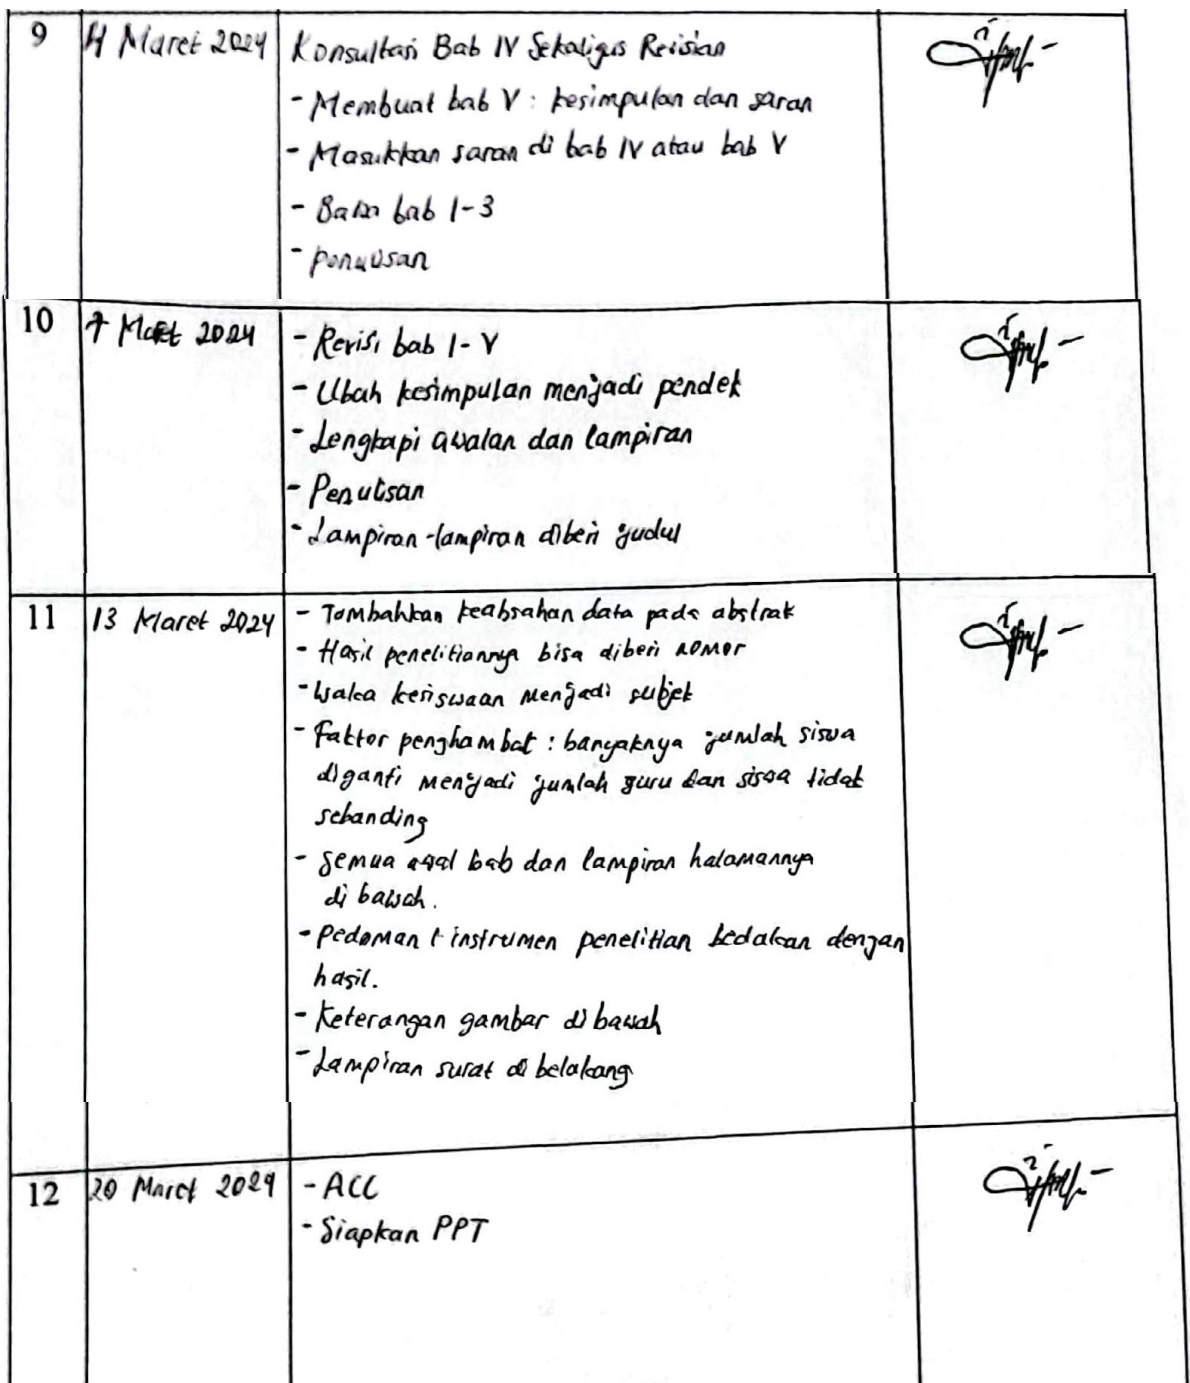 9 4 Maret 2024 Konsultasi Bab IV Sekaligus Revisian
- Membuat bab V : kesimpulan dan saran
- Masukkan saran di bab IV atau bab V
- bab 1-3
- Penulisan
10 7 Maret 2024 - Revisi bab I - V
- Ubah kesimpulan menjadi pendek
- Lengkapi awalan dan lampiran
- Penulisan
- Lampiran-lampiran diberi judul
11 13 Maret 2024 - Tambahkan keabsahan data pada abstrak
- Hasil penelitiannya bisa diberi nomor
- Waka kesiswaan menjadi subjek
- Faktor penghambat : banyaknya jumlah siswa
diganti menjadi jumlah guru dan siswa tidak
sebanding
- Semua awal bab dan lampiran halamannya
di bawah.
- Pedoman + instrumen penelitian bedakan dengan
hasil.
- Keterangan gambar di bawah
- Lampiran surat di belakang
12 20 Maret 2024 - ACC
- Siapkan PPT